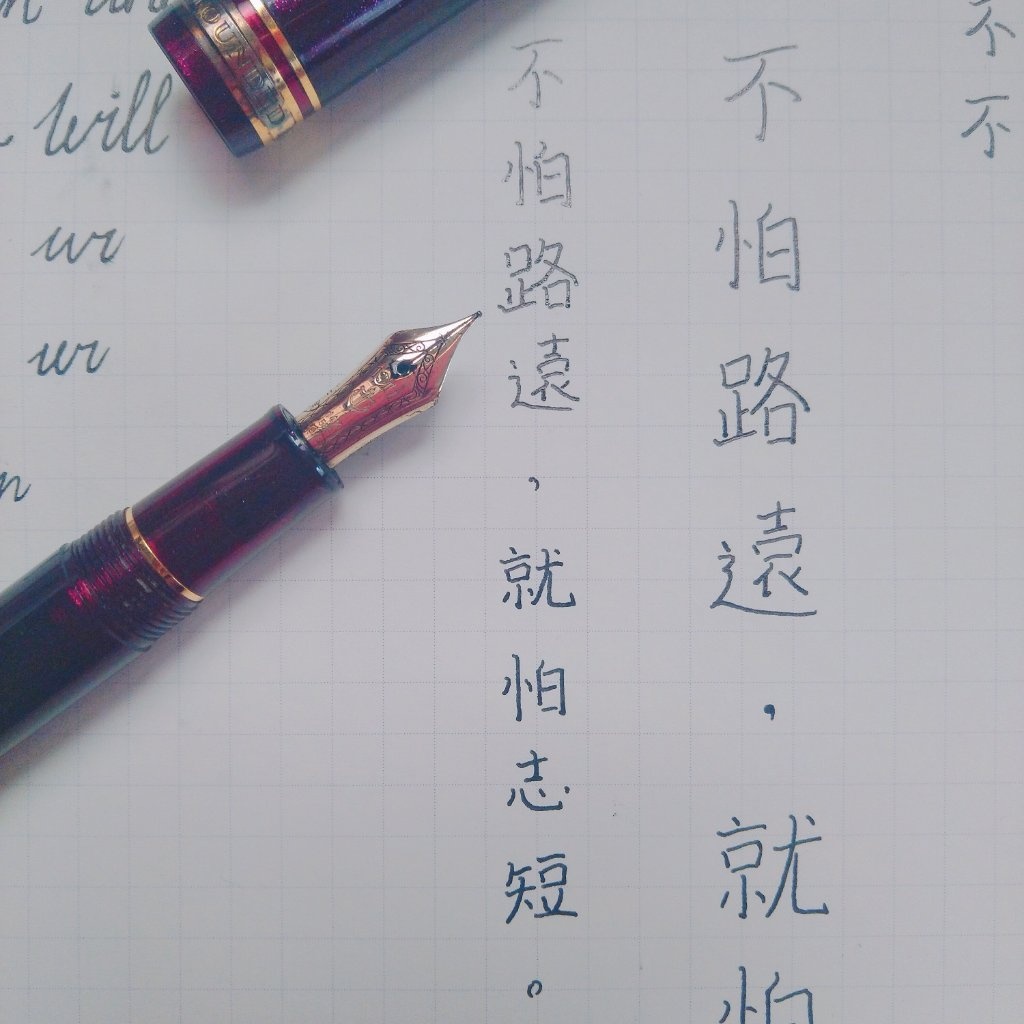 不
不
不怕路遠，就怕
不怕路遠，就怕志短。
will
wr
wr
n